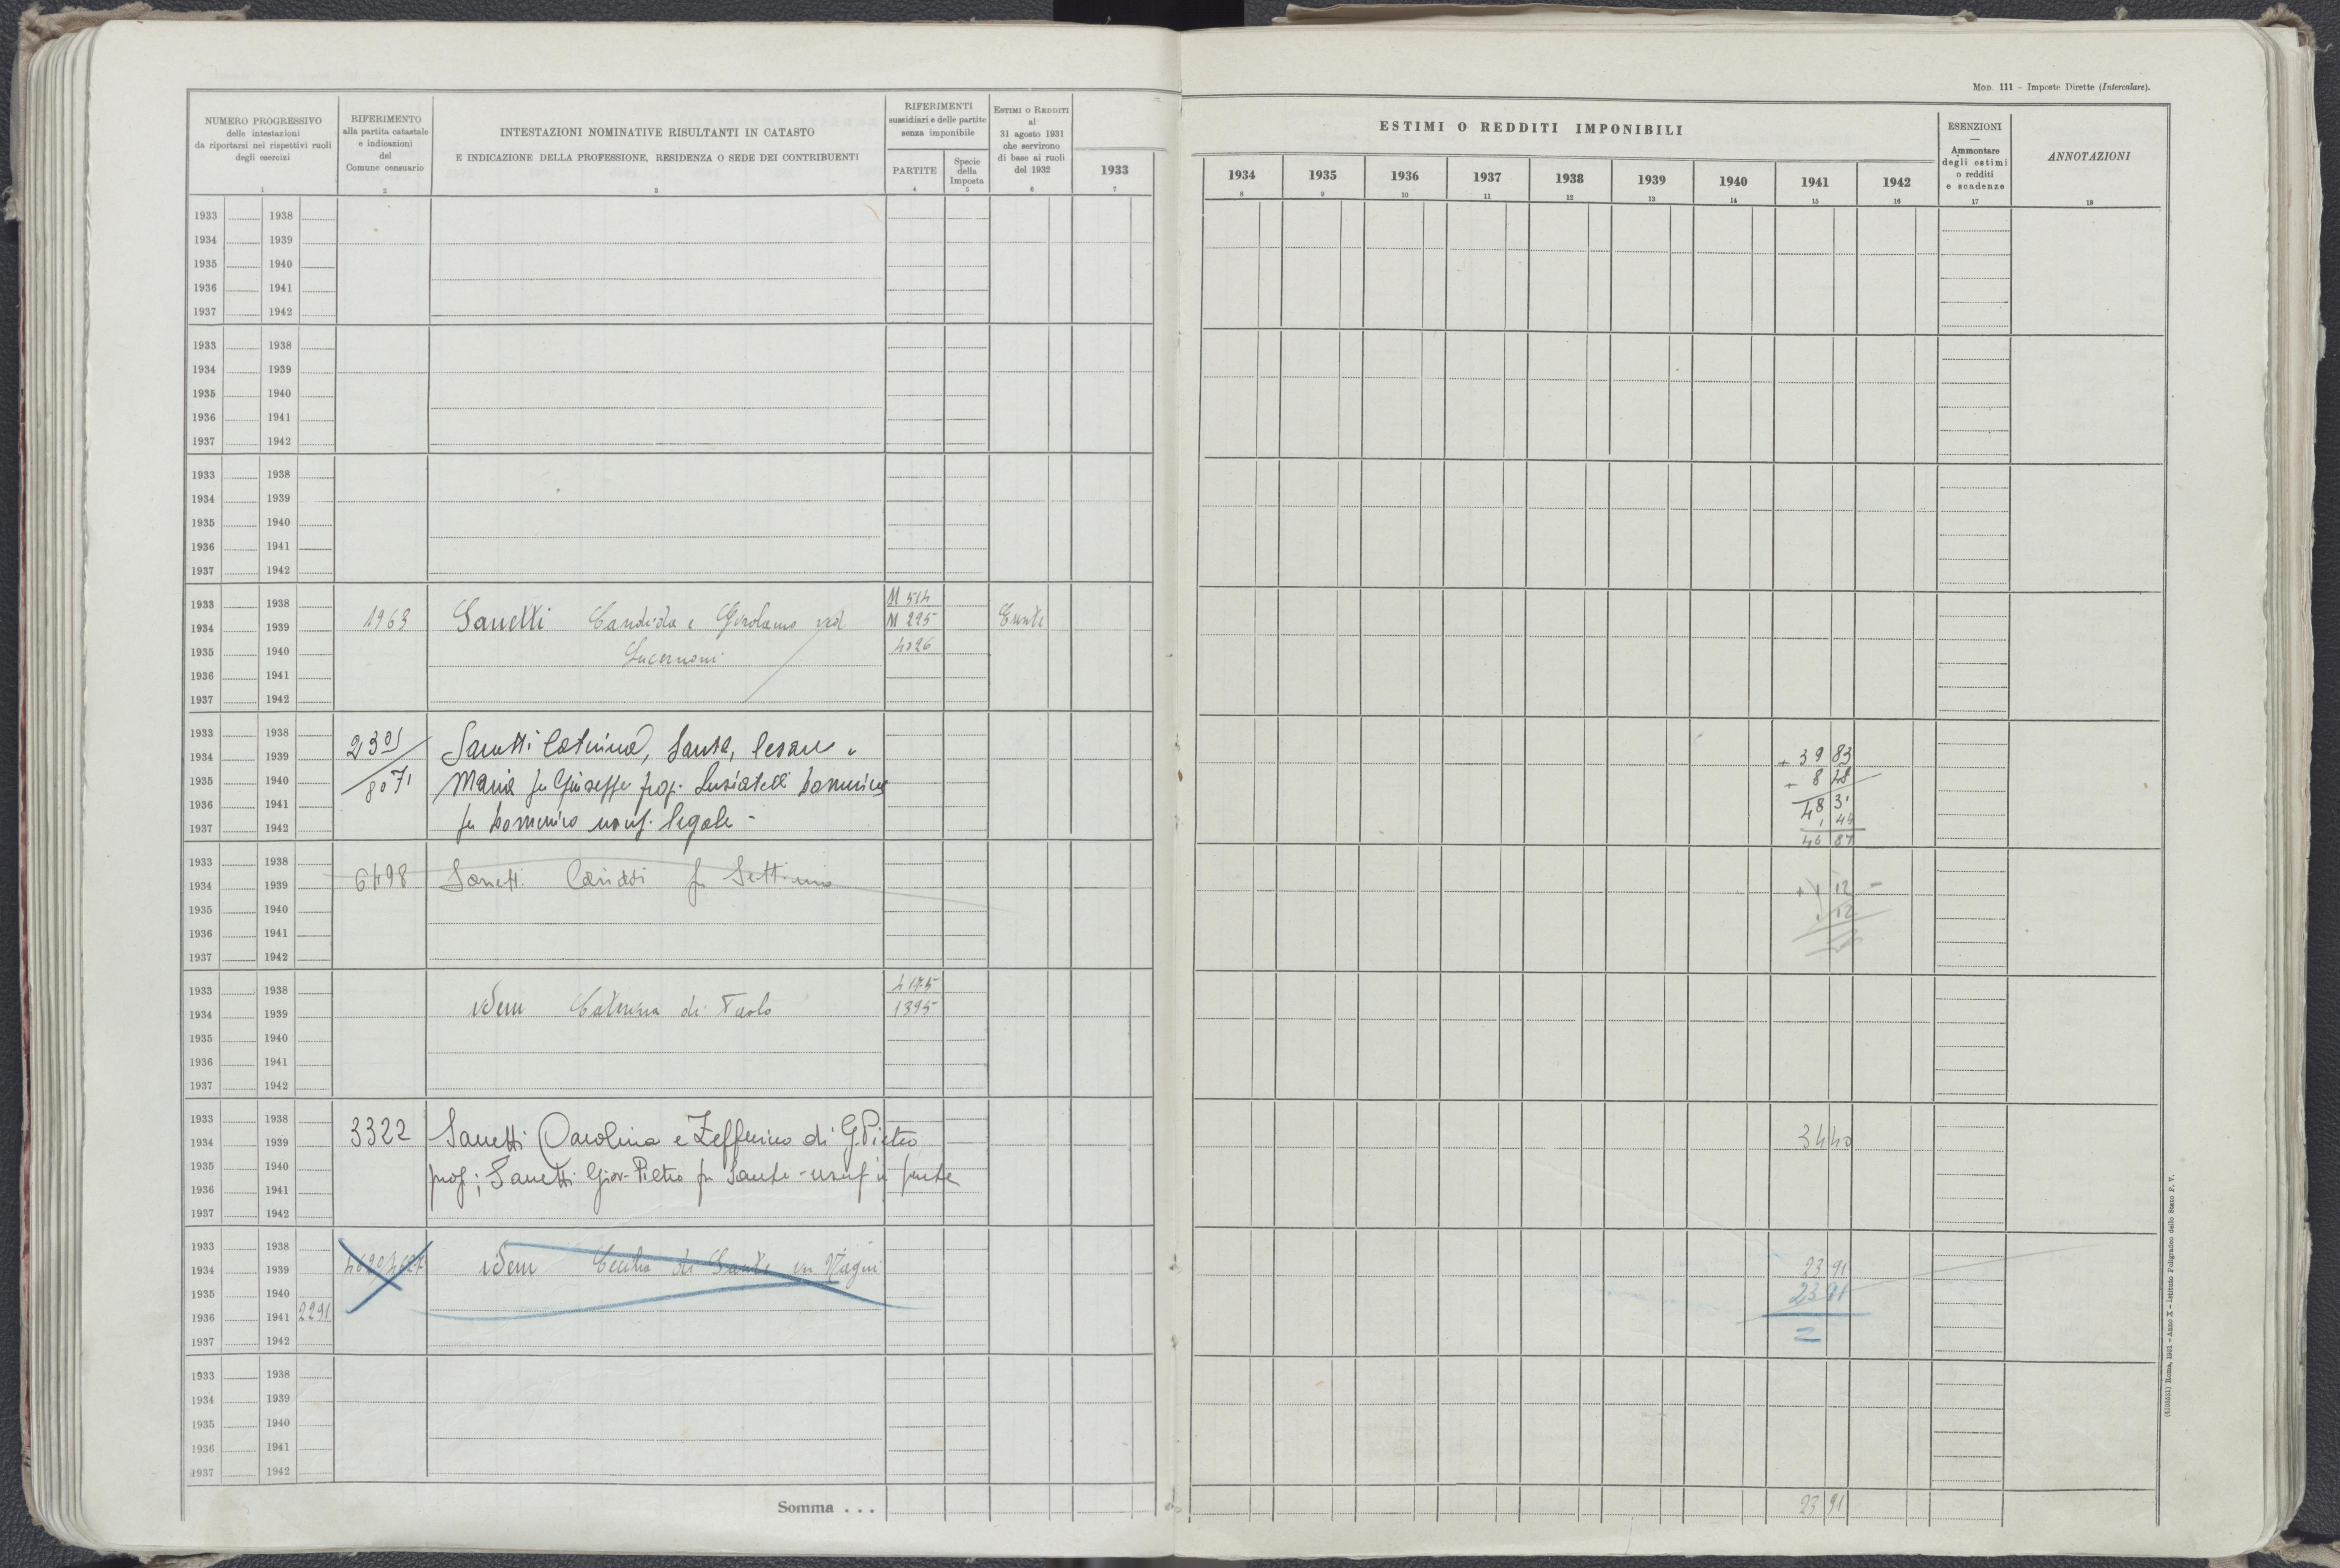 Mod. 111 - Imposte Dirette (Intercalare).
NUMERO PROGRESSIVO
delle intestazioni
da riportarsi nei rispettivi ruoli
degli esercizi
1
RIFERIMENTO
alla partita catastale
e indicazioni
del
Comune censuario
2
INTESTAZIONI NOMINATIVE RISULTANTI IN CATASTO
E INDICAZIONE DELLA PROFESSIONE, RESIDENZA O SEDE DEI CONTRIBUENTI
3
RIFERIMENTI
sussidiari e delle partite
senza imponibile
PARTITE
4
Specie
della
Imposta
5
Estimi o Redditi
al
31 agosto 1931
che servirono
di base ai ruoli
del 1932
6
1933
7
ESTIMI O REDDITI IMPONIBILI
1934 1935 1936 1937 1938 1939 1940 1941 1942
8 9 10 11 12 13 14 15 16
ESENZIONI
—
Ammontare
degli estimi
o redditi
e scadenze
17
ANNOTAZIONI
18
1933 1938
1934 1939
1935 1940
1936 1941
1937 1942
1933 1938
1934 1939
1935 1940
1936 1941
1937 1942
1933 1938
1934 1939
1935 1940
1936 1941
1937 1942
1933 1938 M 514
1934 1939 1963 Sanetti Candida e Girolamo ved M 225
1935 1940 4026
1936 1941
1937 1942
1933 1938 2301
1934 1939 Sanetti Caterina, Santa, Cesare e + 39 83
1935 1940 8071 Maria fu Giuseppe prop. Domenica + 8 48
1936 1941 48 31
1937 1942 fu Domenico usuf. legale - 1 44
46 87
1933 1938
1934 1939 6498 Sanetti fu Settimio + 1 12 -
1935 1940 1 12
1936 1941
1937 1942
1933 1938 4175
1934 1939 idem Caterina di Paolo 1395
1935 1940
1936 1941
1937 1942
1933 1938
1934 1939 3322 Sanetti Carolina e Zefferino di G. Pietro 34 40
1935 1940
1936 1941 prop; Sanetti Giov-Pietro fu Sante - usuf in parte
1937 1942
1933 1938
1934 1939 idem di Sante in 23 91
1935 1940 23 91
1936 1941 2291 =
1937 1942
1933 1938
1934 1939
1935 1940
1936 1941
1937 1942
Somma . . . 23 91
Roma, 1931 - Anno X - Istituto Poligrafico dello Stato P. V.